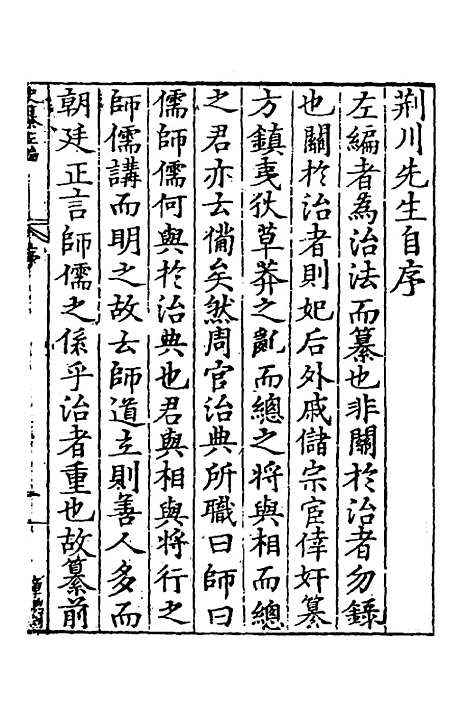 荆川先生自序
左編者為治法而纂也非關於治者勿錄
也關於治者則妃后外戚儲宗宦倖奸篡
方鎮夷狄草莽之亂而總之將與相而總
之君亦云備矣然周官治典所職曰師曰
儒師儒何與於治典也君與相與將行之
師儒講而明之故云師道立則善人多而
朝廷正言師儒之係乎治者重也故纂前
史纂左編
序